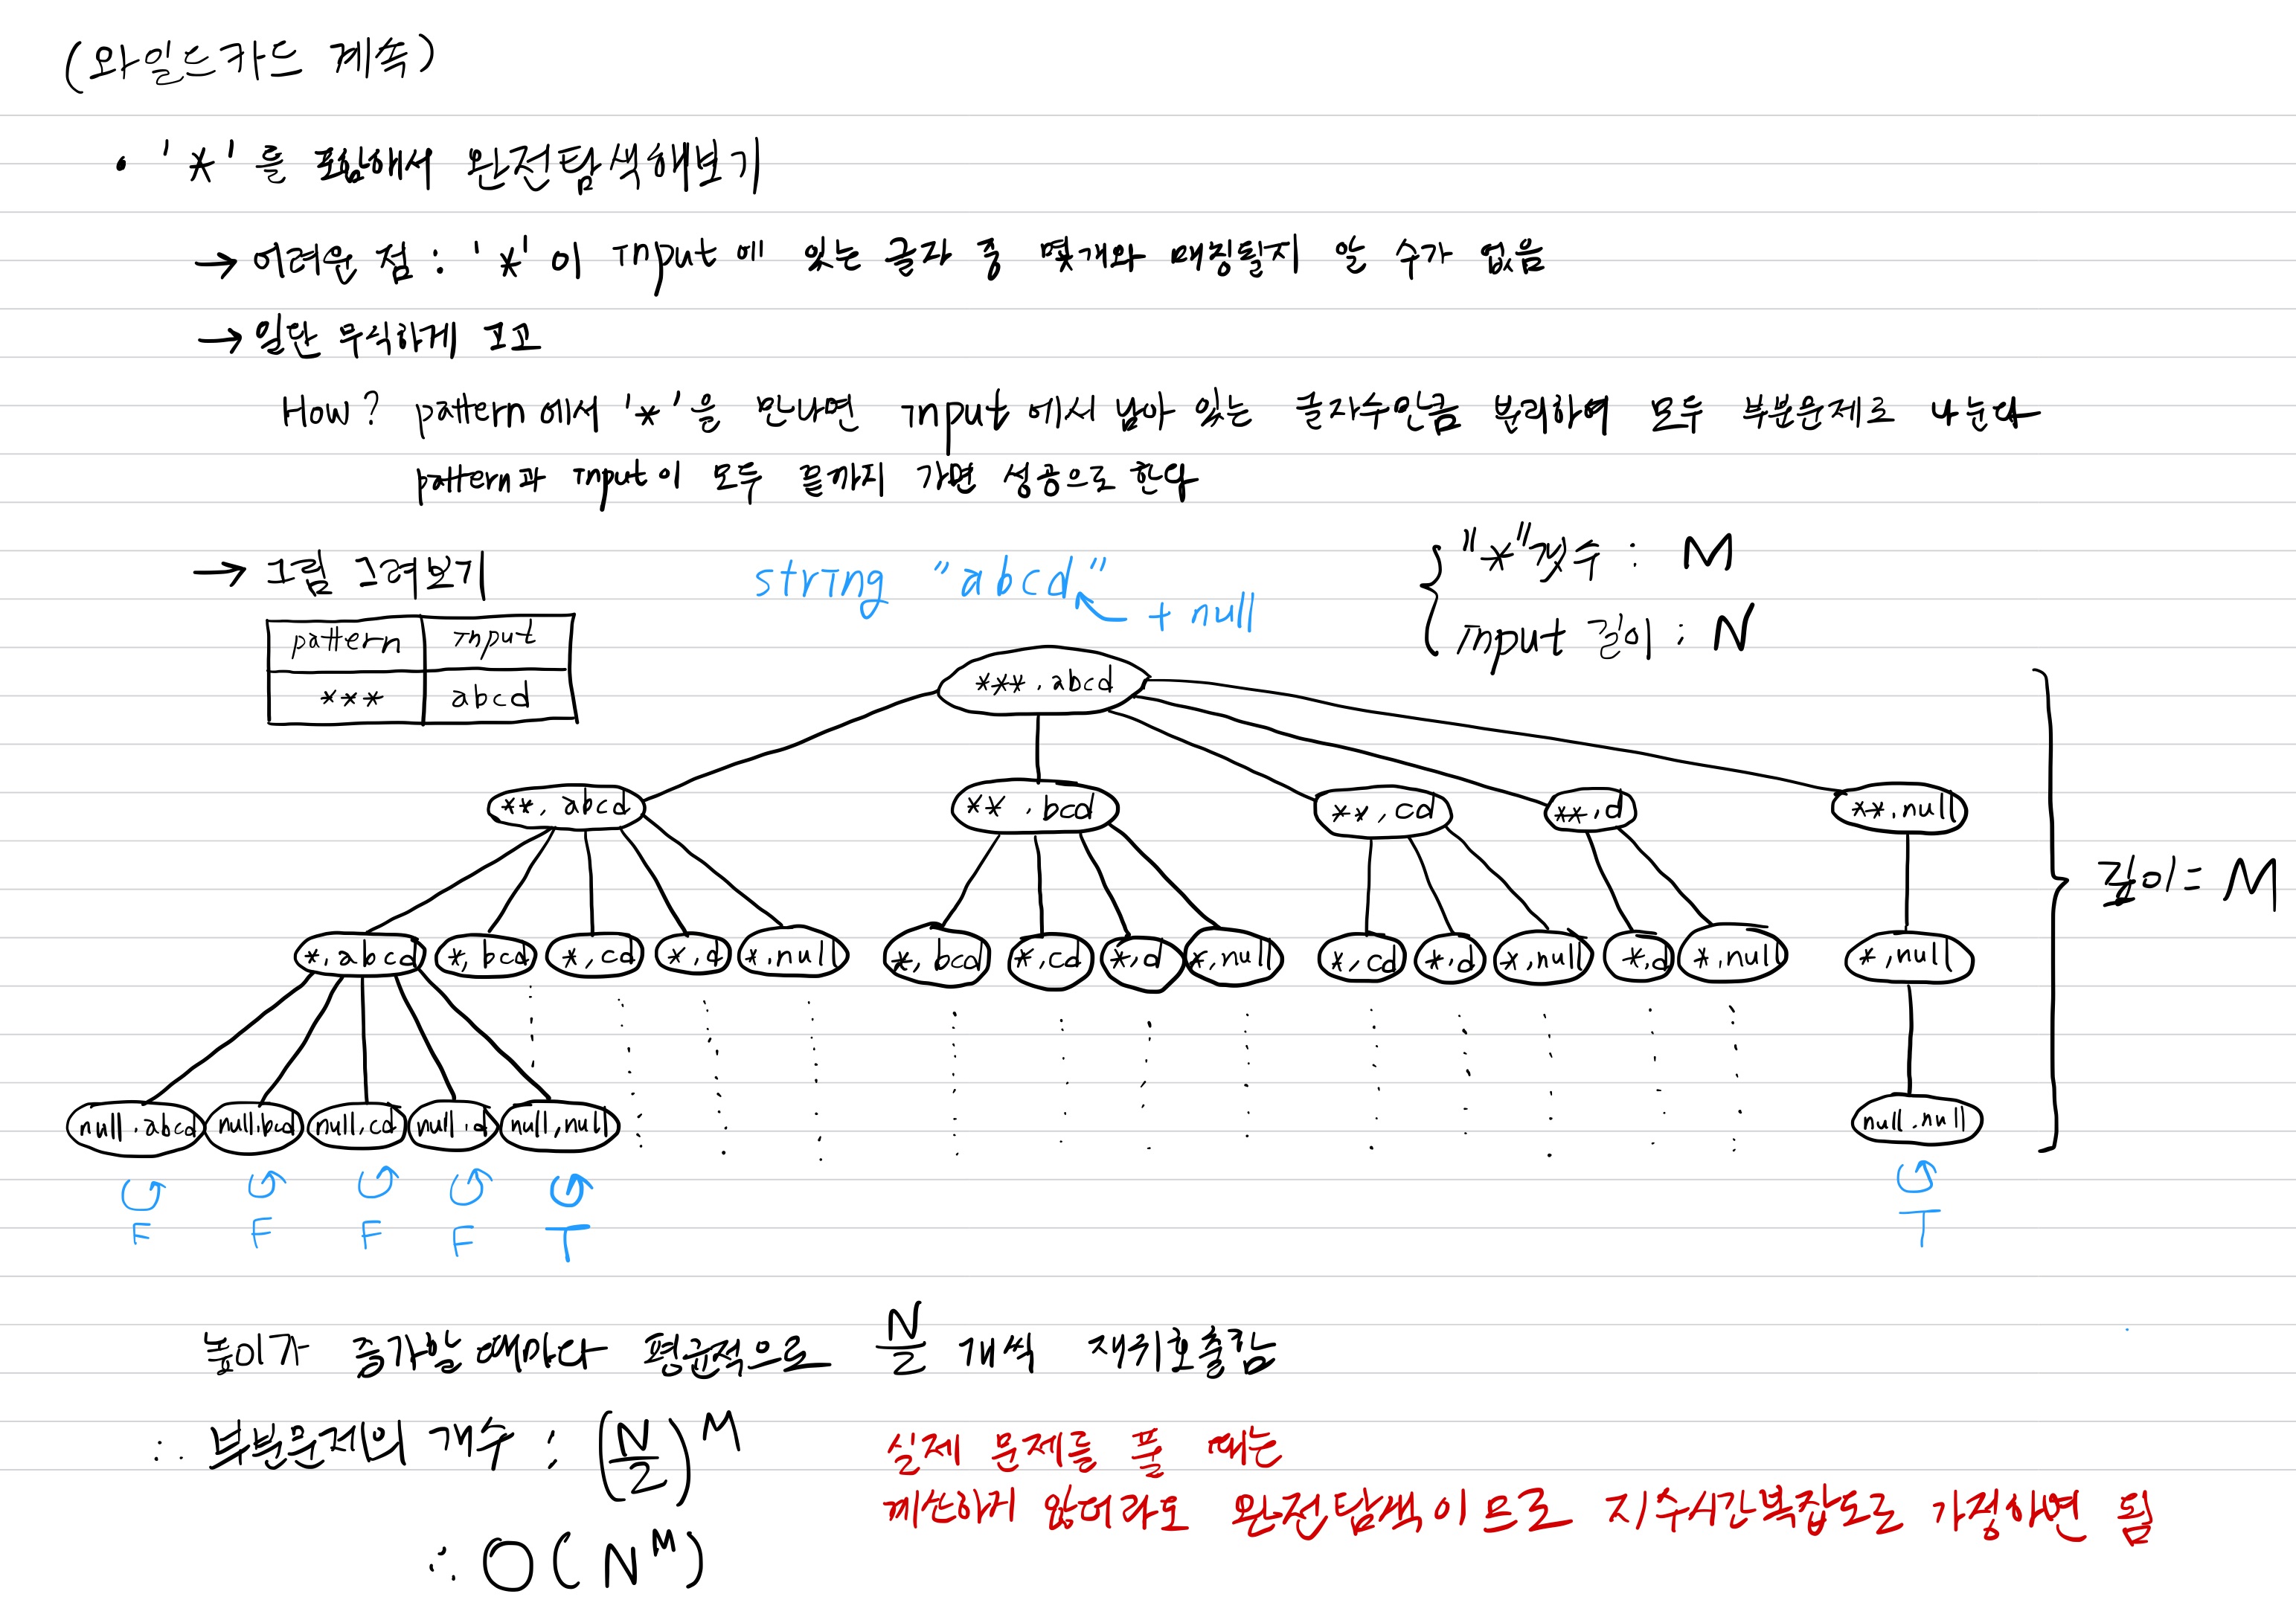 (와일드카드 계속)
• '*'를 포함해서 완전탐색해보기
→ 어려운 점 : '*'이 input에 있는 글자 중 몇개와 매칭될지 알 수가 없음
→ 일단 무식하게 고고
How? pattern에서 '*'을 만나면 input에서 남아 있는 글자수만큼 분리하여 모두 부분문제로 나눈다
pattern과 input이 모두 끝까지 가면 성공으로 한다
→ 그림 그려보기
string "abcd" ← + null
"*"갯수 : M
input 길이 : N
pattern input
*** abcd
***, abcd
**, abcd **, bcd **, cd **, d **, null
깊이 = M
*, abcd *, bcd *, cd *, d *, null *, bcd *, cd *, d *, null *, cd *, d *, null *, d *, null *, null
null, abcd null, bcd null, cd null, d null, null null, null
F F F F T T
높이가 증가할 때마다 평균적으로 N/2 개씩 재귀호출함
∴ 부분문제의 개수 : (N/2)^M
실제 문제를 풀 때는
계산하지 않더라도 완전탐색이므로 지수시간복잡도로 가정하면 됨
∴ O(N^M)